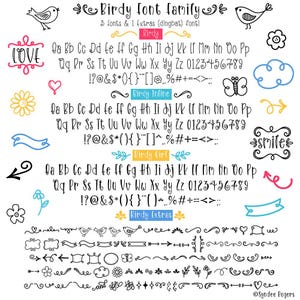 Birdy Font Family
3 fonts & 1 Extras (dingbat) font!
Birdy
LOVE
Aa Bb Cc Dd Ee Ff Gg Hh Ii Jj Kk Ll Mm Nn Oo Pp
Qq Rr Ss Tt Uu Vv Ww Xx Yy Zz 0123456789
!?@&$*(){}~[]@^..%#+=<>:;
Birdy Inline
Aa Bb Cc Dd Ee Ff Gg Hh Ii Jj Kk Ll Mm Nn Oo Pp
Qq Rr Ss Tt Uu Vv Ww Xx Yy Zz 0123456789
smile
Birdy Curl
Aa Bb Cc Dd Ee Ff Gg Hh Ii Jj Kk Ll Mm Nn Oo Pp
Qq Rr Ss Tt Uu Vv Ww Xx Yy Zz 0123456789
Birdy Extras